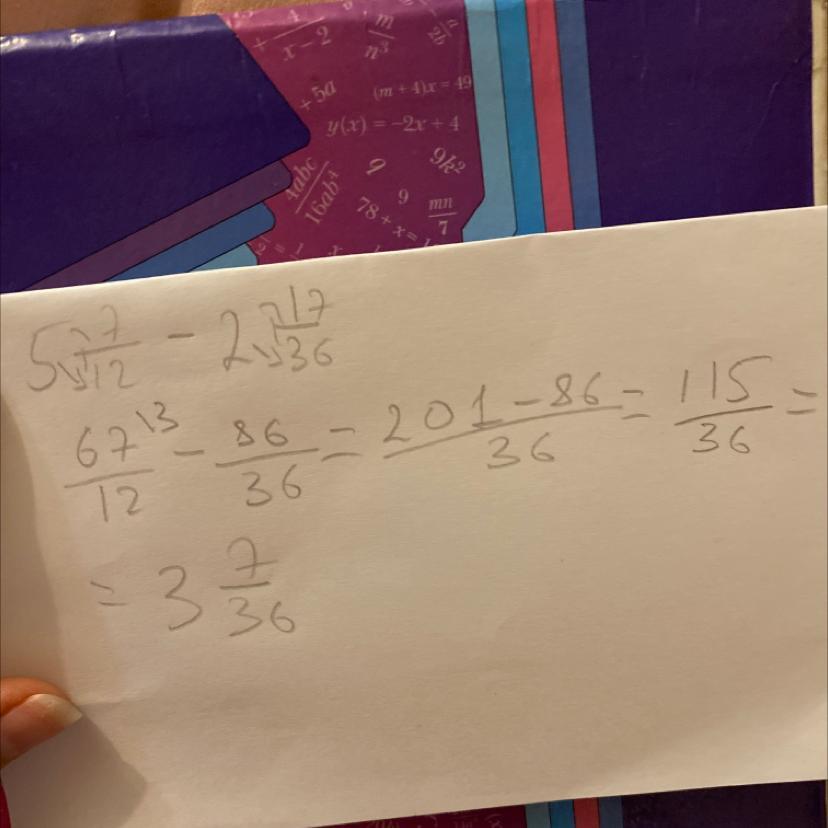 4/(x-2)
m/n³
a/2b
+5a
(m+4)x=49
y(x) = -2x+4
4abc/16ab⁴
9
9k²
78+x=1
9
mn/7
5 7/12 - 2 17/36
67/12 \3 - 86/36 = (201-86)/36 = 115/36 =
= 3 7/36